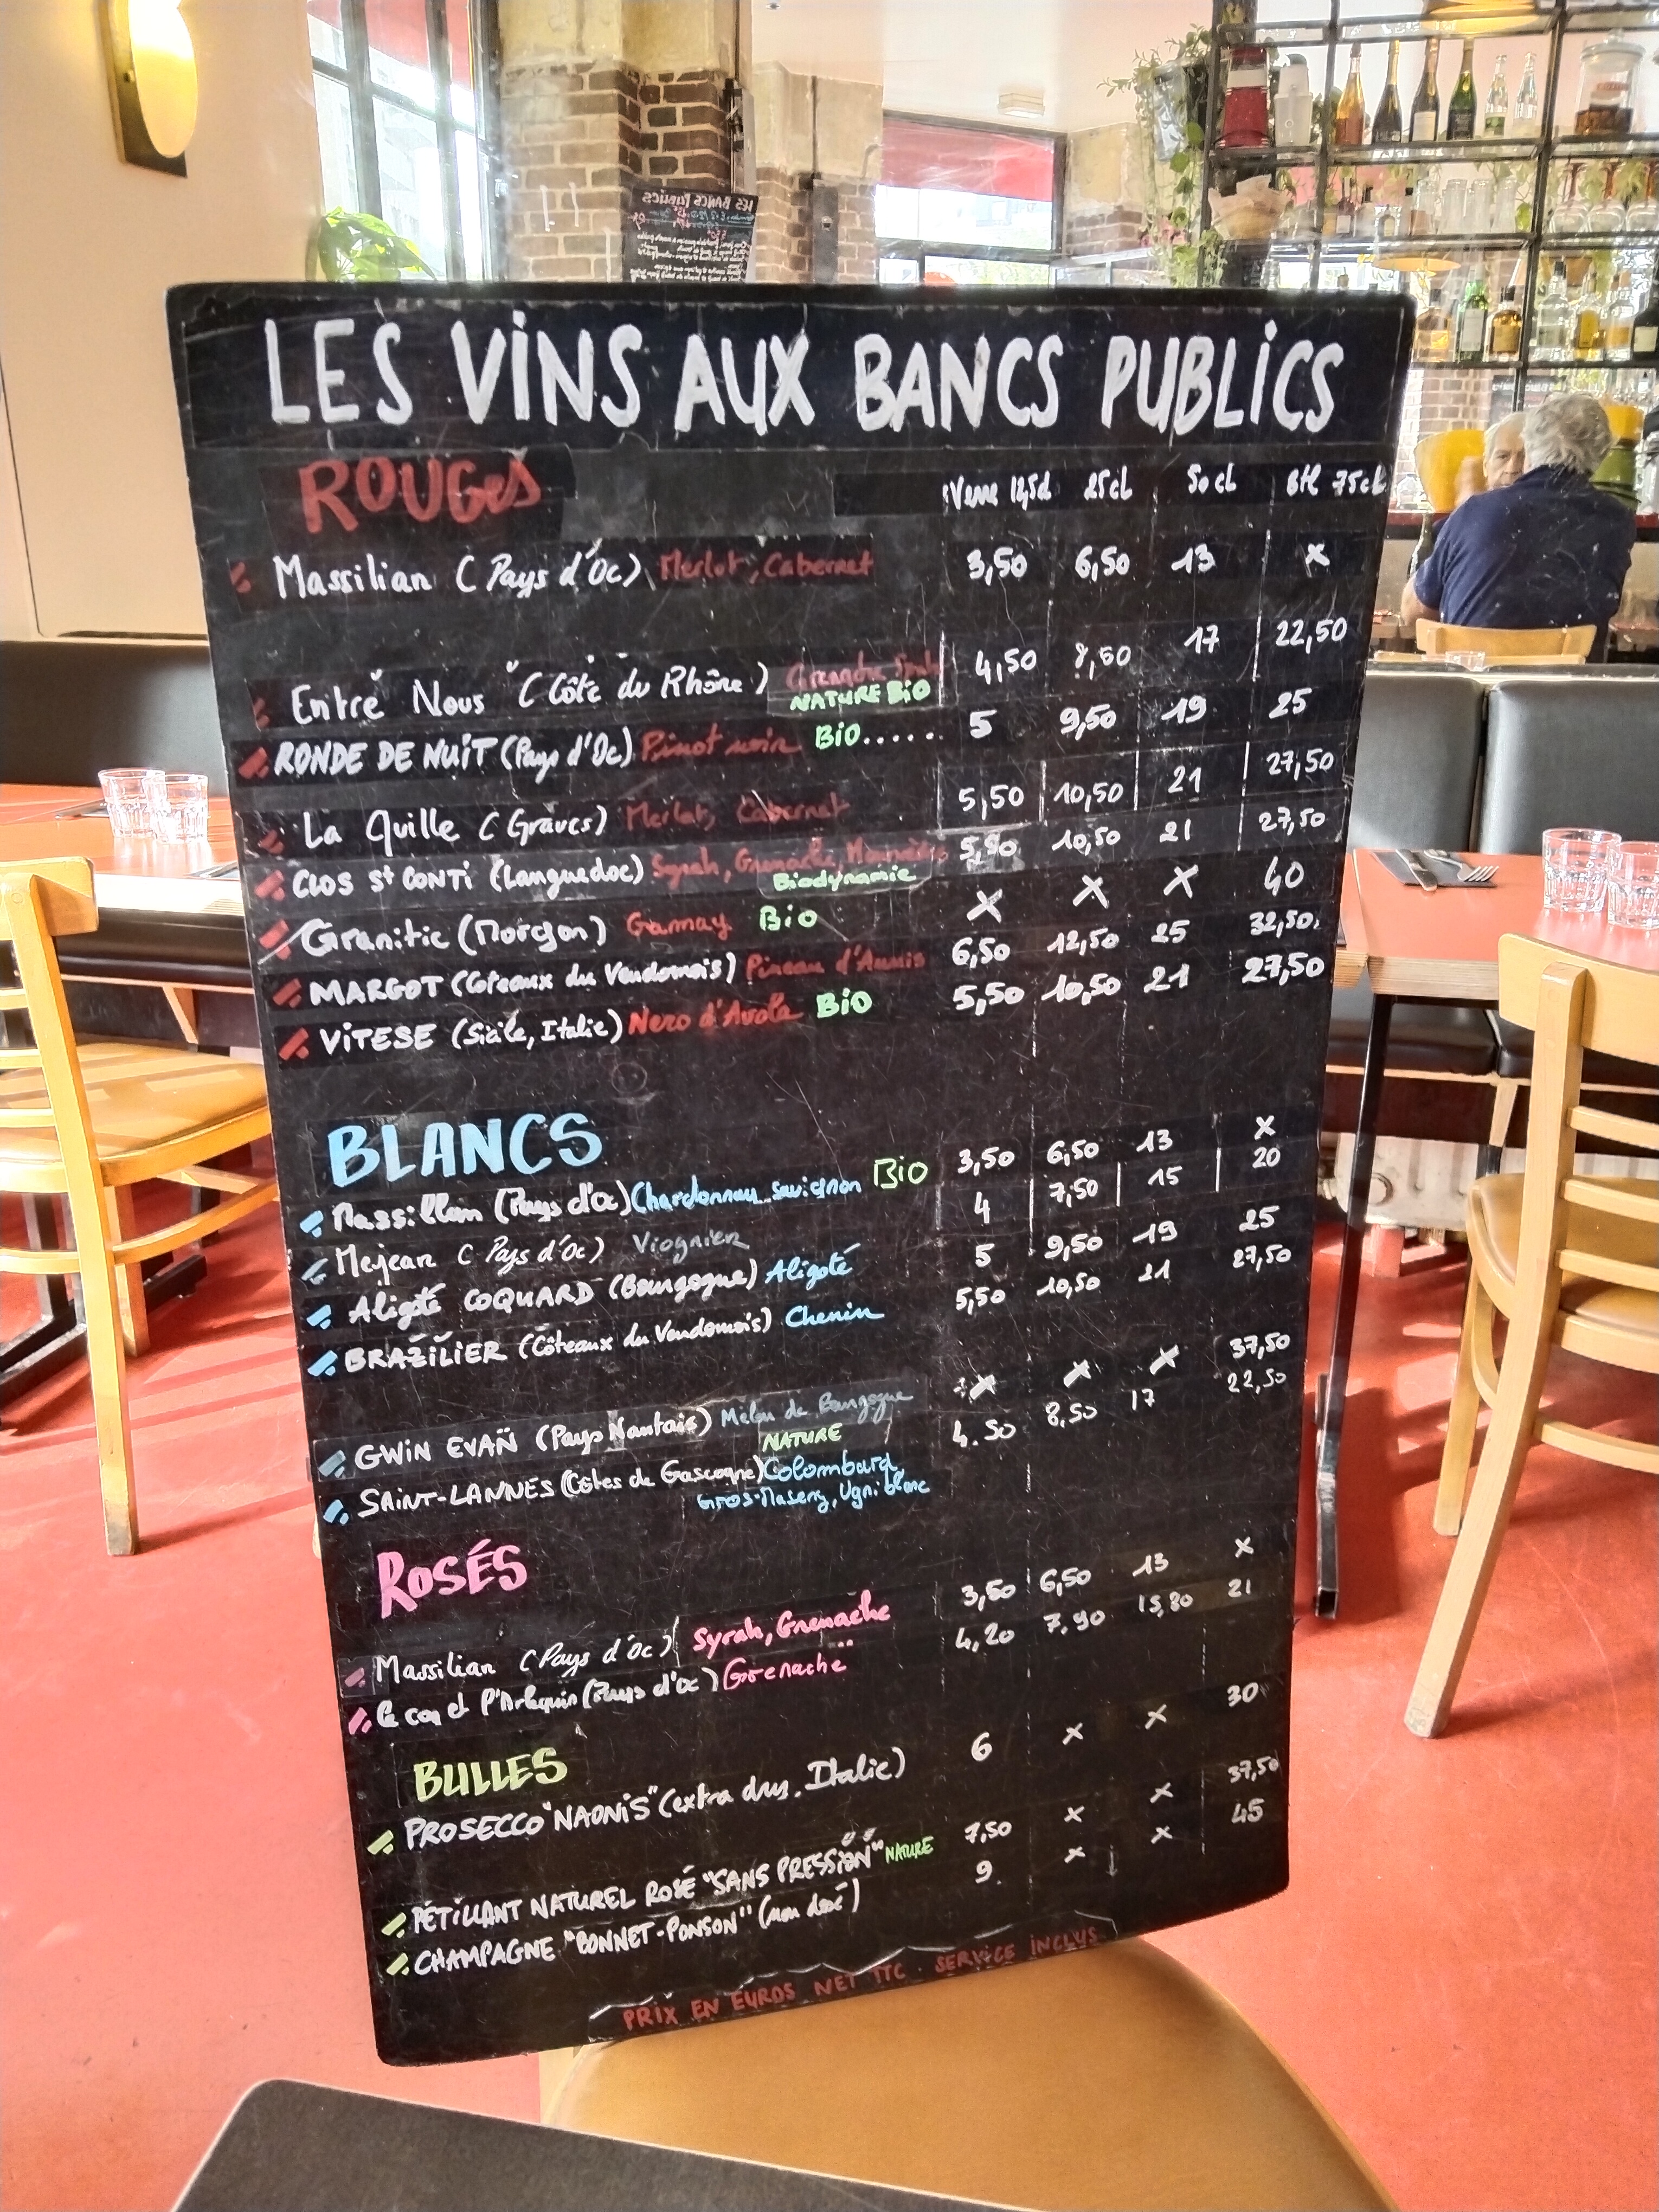 LES VINS AUX BANCS PUBLICS
ROUGES Verre 12,5cl 25cl 50cl Btl 75cl
Massilian (Pays d'Oc) Merlot, Cabernet 3,50 6,50 13 x
"Entre Nous" (Côte du Rhône) Grenache 4,50 8,50 17 22,50
NATURE BIO
RONDE DE NUIT (Pays d'Oc) Pinot noir BIO...... 5 9,50 19 25
La Quille (Graves) Merlot, Cabernet 5,50 10,50 21 27,50
CLOS St CONTI (Languedoc) Syrah, Grenache, 5,50 10,50 21 27,50
Biodynamie
Granitic (Morgon) Gamay Bio X X X 40
MARGOT (Coteaux du Vendomois) Pineau d'Aunis 6,50 12,50 25 32,50
VITESE (Sicile, Italie) Nero d'Avola BIO 5,50 10,50 21 27,50
BLANCS
Massillian (Pays d'Oc) Chardonnay sauvignon BIO 3,50 6,50 13 x
Mejean (Pays d'Oc) Viognier 4 7,50 15 20
Aligoté COQUARD (Bourgogne) Aligoté 5 9,50 19 25
BRAZILIER (Côteaux du Vendomois) Chenin 5,50 10,50 21 27,50
GWIN EVAN (Pays Nantais) Melon de Bourgogne x x x 37,50
NATURE
SAINT-LANNES (Côtes de Gascogne) Colombard 4.50 8,50 17 22,50
Gros-Maseng, Ugni blanc
ROSÉS
Massilian (Pays d'Oc) Syrah, Grenache 3,50 6,50 13 x
le coq et l'Arlequin (Pays d'oc) Grenache 4,20 7,90 15,80 21
BULLES
PROSECCO "NAONIS" (extra dry, Italie) 6 x x 30
PÉTILLANT NATUREL ROSÉ "SANS PRESSION" NATURE 7,50 x x 37,50
CHAMPAGNE "BONNET-PONSON" (non dosé) 9 x x 45
PRIX EN EUROS NET TTC. SERVICE INCLUS
LES BANCS PUBLICS